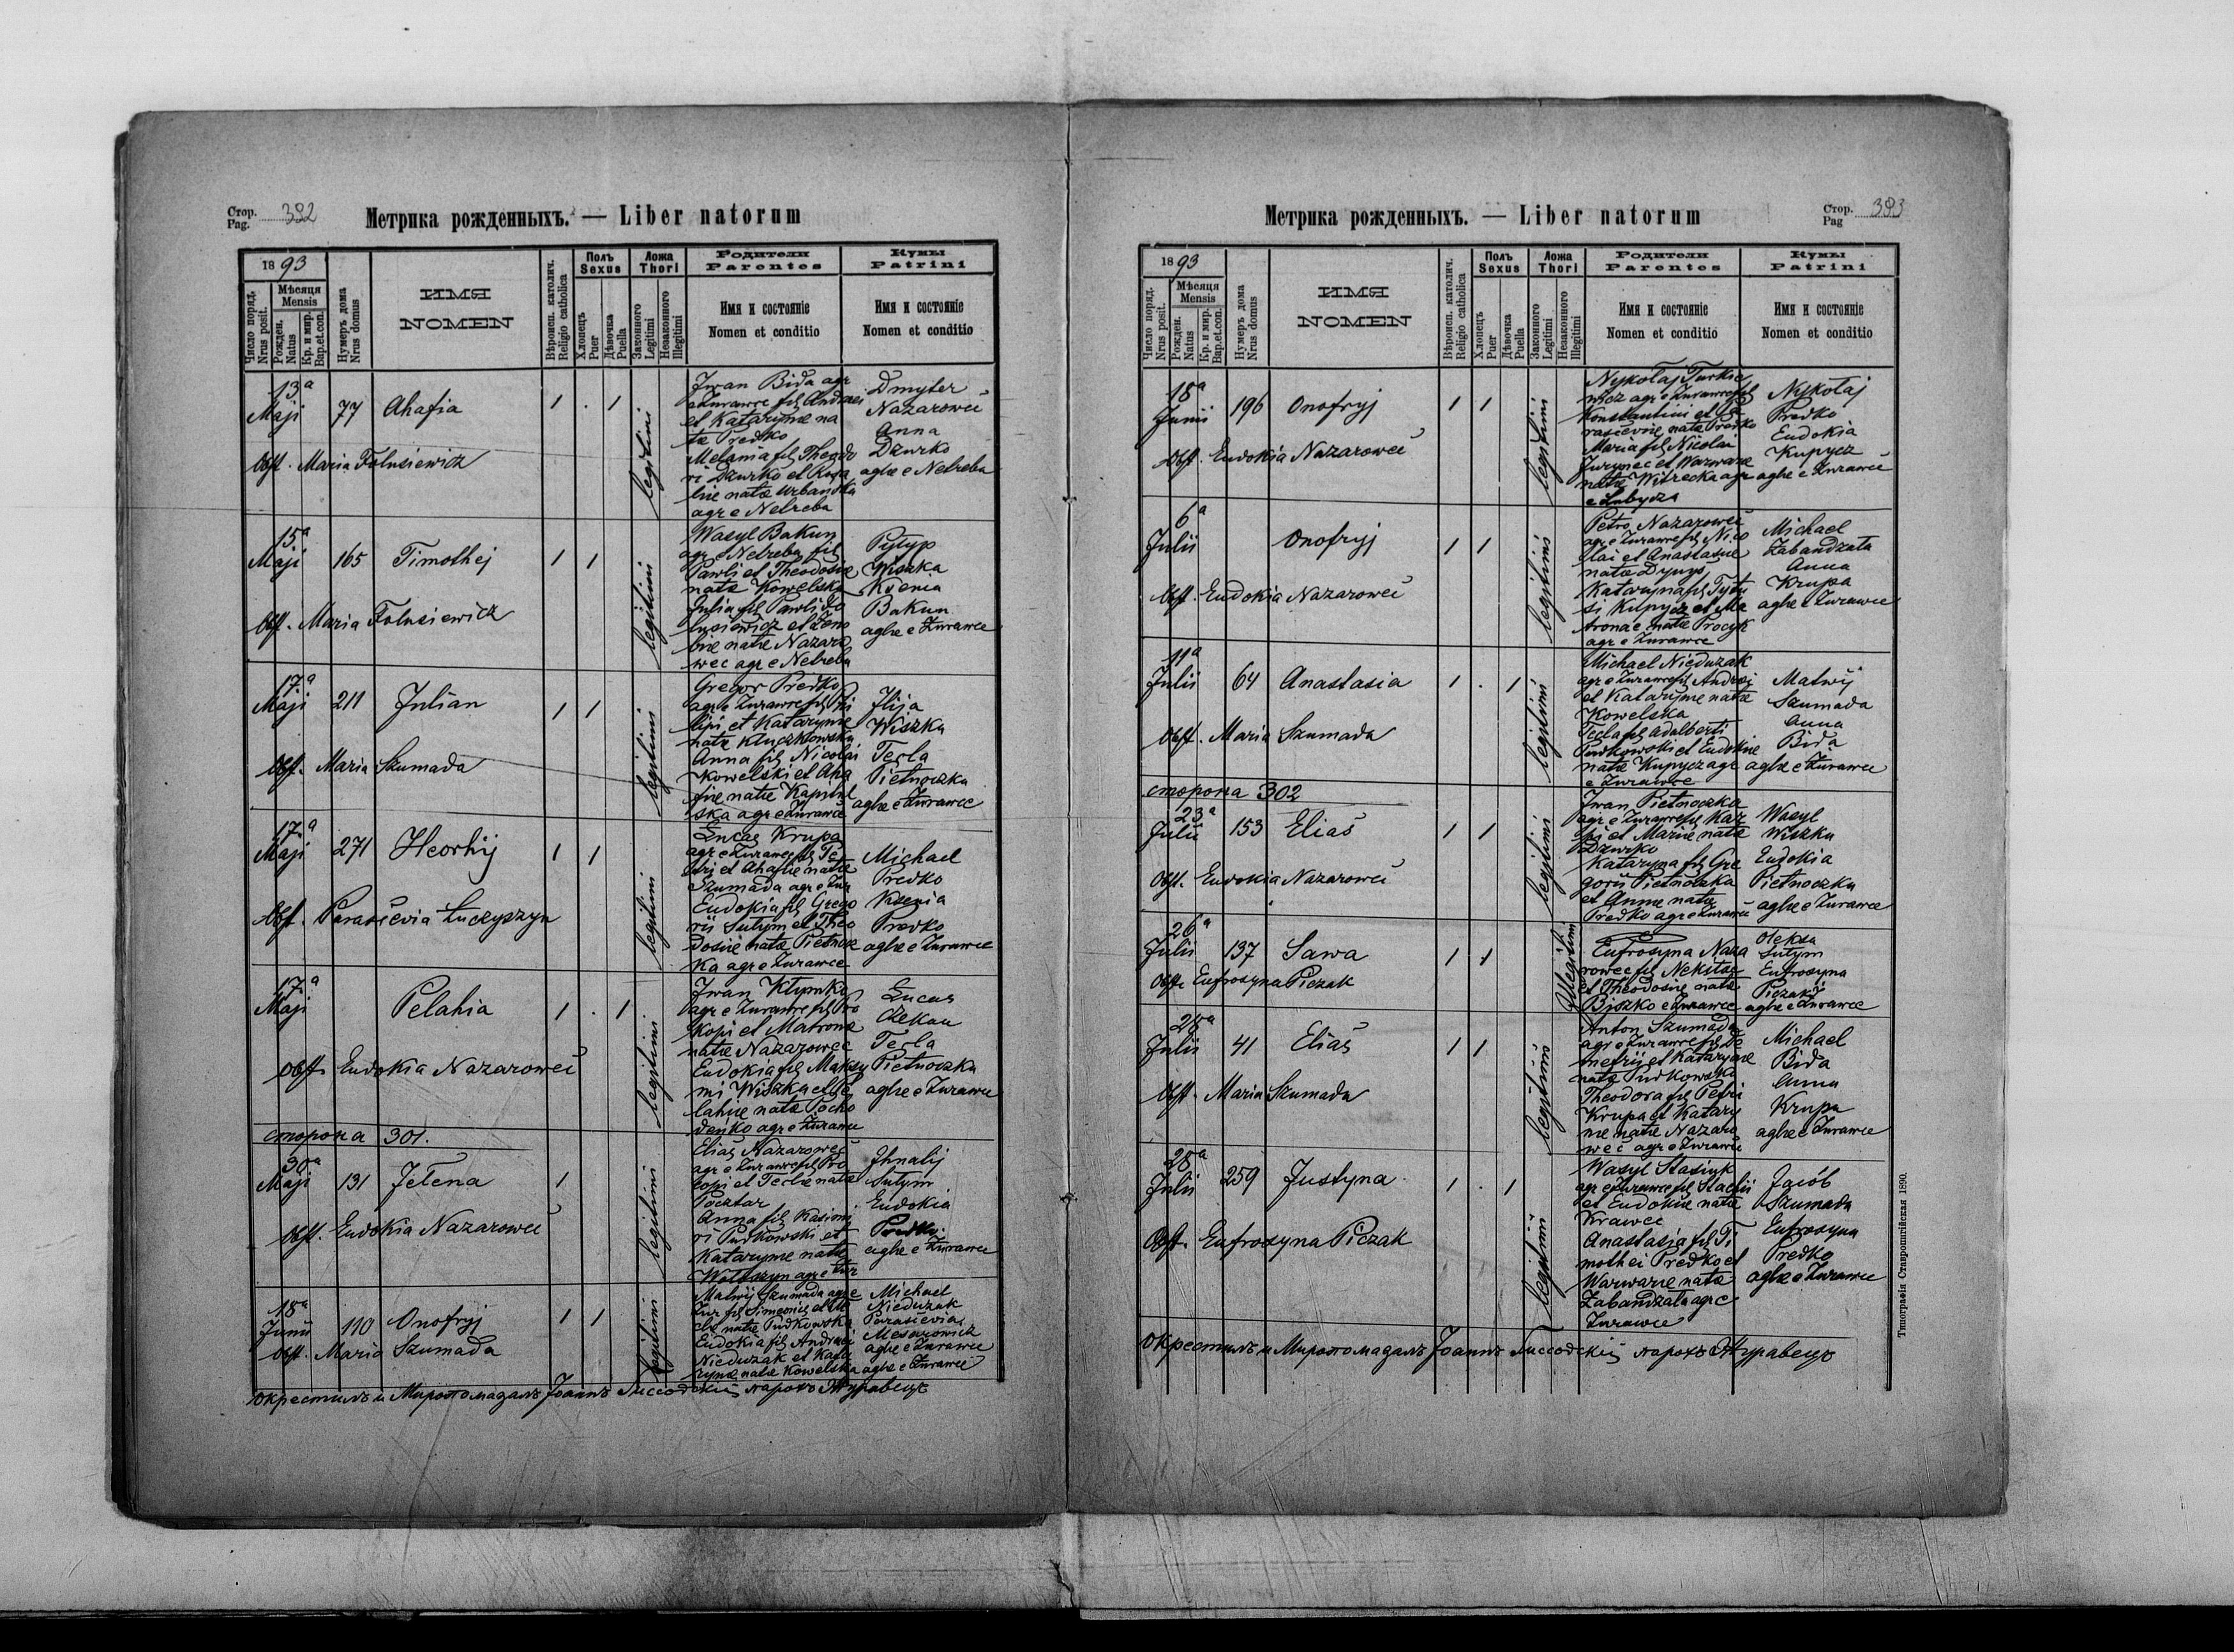 Стор. Pag. 392
Метрика рожденныхъ. — Liber natorum
1893
Число поряд. Nrus posit.
Мѣсяця Mensis
Рожден. Natus
Кр. и мир. Bap.et.con.
Нумеръ дома Nrus domus
ИМЯ NOMEN
Вѣроисп. католич. Religio catholica
Полъ Sexus
Хлопецъ Puer
Дѣвочка Puella
Ложа Thori
Законного Legitimi
Незаконного Illegitimi
Родители Parentes
Имя и состоянiе Nomen et conditio
Кумы Patrini
Имя и состоянiе Nomen et conditio
13ª Maji 77 Ahafia 1 . 1 legitimi
Iwan Bida agr
e Żurawce fil Andrei
et Katarynæ na
tæ Predko
Melania fil Theodo
ri Dzwrko et Rosa
liæ natæ Urbanska
agr e Nelreba
Dmyter
Nazarowec
Anna
Dzwrko
aglæ e Nelreba
Obst. Maria Folusiewicz
15ª Maji 165 Timothej 1 1 legitimi
Wasyl Bakun
agr e Nelreba fil
Pawli et Theodosiæ
natæ Kowelska
Julia fil Pawli Fo
lusiewicz et Zeno
biæ natæ Nazaro
wec agr e Nelreba
Pylyp
Wiszka
Ksenia
Bakun
aglæ e Żurawce
Obst. Maria Folusiewicz
17ª Maji 211 Julian 1 1 legitimi
Gregor Predko
agr e Żurawce fil Phi
lipi et Katarynæ
natæ Kluczkowska
Anna fil Nicolai
Kowelski et Aha
fiæ natæ
ska agr e Żurawce
Ilija
Wiszka
Tecla
Pietnoczka
aglæ e Żurawce
Obst. Maria Szumada
17ª Maji 271 Heorhij 1 1 legitimi
Lucas Krupa
agr e Żurawce fil Pe
tri et Ahafiæ natæ
Szumada agr e Żur
Eudokia fil Grego
rii Sutym et Theo
dosiæ natæ Pietnocz
ka agr e Żurawce
Michael
Predko
Ksenia
Predko
aglæ e Żurawce
Obst. Parascevia Łuczyszyn
17ª Maji Pelahia 1 . 1 legitimi
Iwan Klymko
agr e Żurawce fil Pro
kopi et Matronæ
natæ Nazarowec
Eudokia fil Maksy
mi Wiszka et Pe
lahiæ natæ Pocho
denko agr e Żurawce
Lucas
Czekan
Tecla
Pietnoczka
aglæ e Żurawce
Obst. Eudokia Nazarowec
сторона 301.
30ª Maji 131 Jelena 1 legitimi
Elias Nazarowec
agr e Żurawce fil Pro
copi et Teclæ natæ
Pocztar
Anna fil Kasimi
ri Pudkowski et
Katarynæ natæ
Woloszyn agr e Żur
Ihnatij
Sutym
Eudokia
Predko
aglæ e Żurawce
Obst. Eudokia Nazarowec
18ª Junii 110 Onofryj 1 1 legitimi
Matwij Szumada agr e
Żur fil Simeonis et Te
clæ natæ Pudkowska
Eudokia fil Andreei
Nieduzak et Kata
rynæ natæ Kowelska
Michael
Nieduzak
Parascevia
Mesarowicz
aglæ e Żurawce
aglæ e Żurawce
Obst. Maria Szumada
Окрестилъ и Миропомазалъ Іоаннъ парохъ Журавецъ
Метрика рожденныхъ. — Liber natorum
Стор. Pag 393
1893
Число поряд. Nrus posit.
Мѣсяця Mensis
Рожден. Natus
Кр. и мир. Bap.et.con.
Нумеръ дома Nrus domus
ИМЯ NOMEN
Вѣроисп. католич. Religio catholica
Полъ Sexus
Хлопецъ Puer
Дѣвочка Puella
Ложа Thori
Законного Legitimi
Незаконного Illegitimi
Родители Parentes
Имя и состоянiе Nomen et conditio
Кумы Patrini
Имя и состоянiе Nomen et conditio
18ª Junii 196 Onofryj 1 1 legitimi
Nykolaj Turkie
wicz agr e Żurawce fil
Konstantini et Pa
rasceviæ natæ Predko
Maria fil Nicolai
Jurynec et Warwaræ
natæ Witrecka agr
e Lubycza
Nykolaj
Predko
Eudokia
Kupycz
aglæ e Żurawce
Obst. Eudokia Nazarowec
6ª Julii Onofryj 1 1 legitimi
Petro Nazarowec
agr e Żurawce fil Nico
lai et Anastasiæ
natæ Dynys
Kataryna fil Tytu
si Kupycz et Ma
tronæ natæ Procyk
agr e Żurawce
Michael
Zabandzala
Anna
Krupa
aglæ e Żurawce
Obst. Eudokia Nazarowec
11ª Julii 64 Anastasia 1 . 1 legitimi
Michael Nieduzak
agr e Żurawce fil Andrej
et Katarynæ natæ
Kowelska
Tecla fil Adalberti
Pudkowski et Eudokiæ
natæ Kupycz agr
e Żurawce
Matwij
Szumada
Anna
Bida
aglæ e Żurawce
Obst. Maria Szumada
сторона 302
23ª Julii 153 Elias 1 1 legitimi
Iwan Pietnoczka
agr e Żurawce fil Kar
pi et Mariæ natæ
Dzwrko
Kataryna fil Gre
gorii Pietnoczka
et Annæ natæ
Predko agr e Żurawce
Wasyl
Wiszka
Eudokia
Pietnoczka
aglæ e Żurawce
Obst. Eudokia Nazarowec
26ª Julii 137 Sawa 1 1 Illegitimi
Eufrosyna Naza
rowec fil Nekstae
et Theodosiæ natæ
Biszko e Żurawce
Oleksa
Sutym
Eufrosyna
Piczak
aglæ e Żurawce
Obst. Eufrosyna Piczak
28ª Julii 41 Elias 1 1 legitimi
Anton Szumada
agr e Żurawce fil De
metrii et Katarynæ
natæ Pudkowska
Theodora fil Petri
Krupa et Katary
næ natæ Nazaro
wec agr e Żurawce
Michael
Bida
Anna
Krupa
aglæ e Żurawce
Obst. Maria Szumada
28ª Julii 259 Justyna 1 . 1 legitimi
Wasyl Stasiuk
agr e Żurawce fil Stachii
et Eudokiæ natæ
Krawec
Anastasia fil Ti
mothei Predko et
Warwaræ natæ
Zabandzala agr e
Żurawce
Jacób
Szumada
Eufrosyna
Predko
aglæ e Żurawce
Obst. Eufrosyna Piczak
Окрестилъ и Миропомазалъ Іоаннъ парохъ Журавецъ
Типографія Ставропигійская 1890.